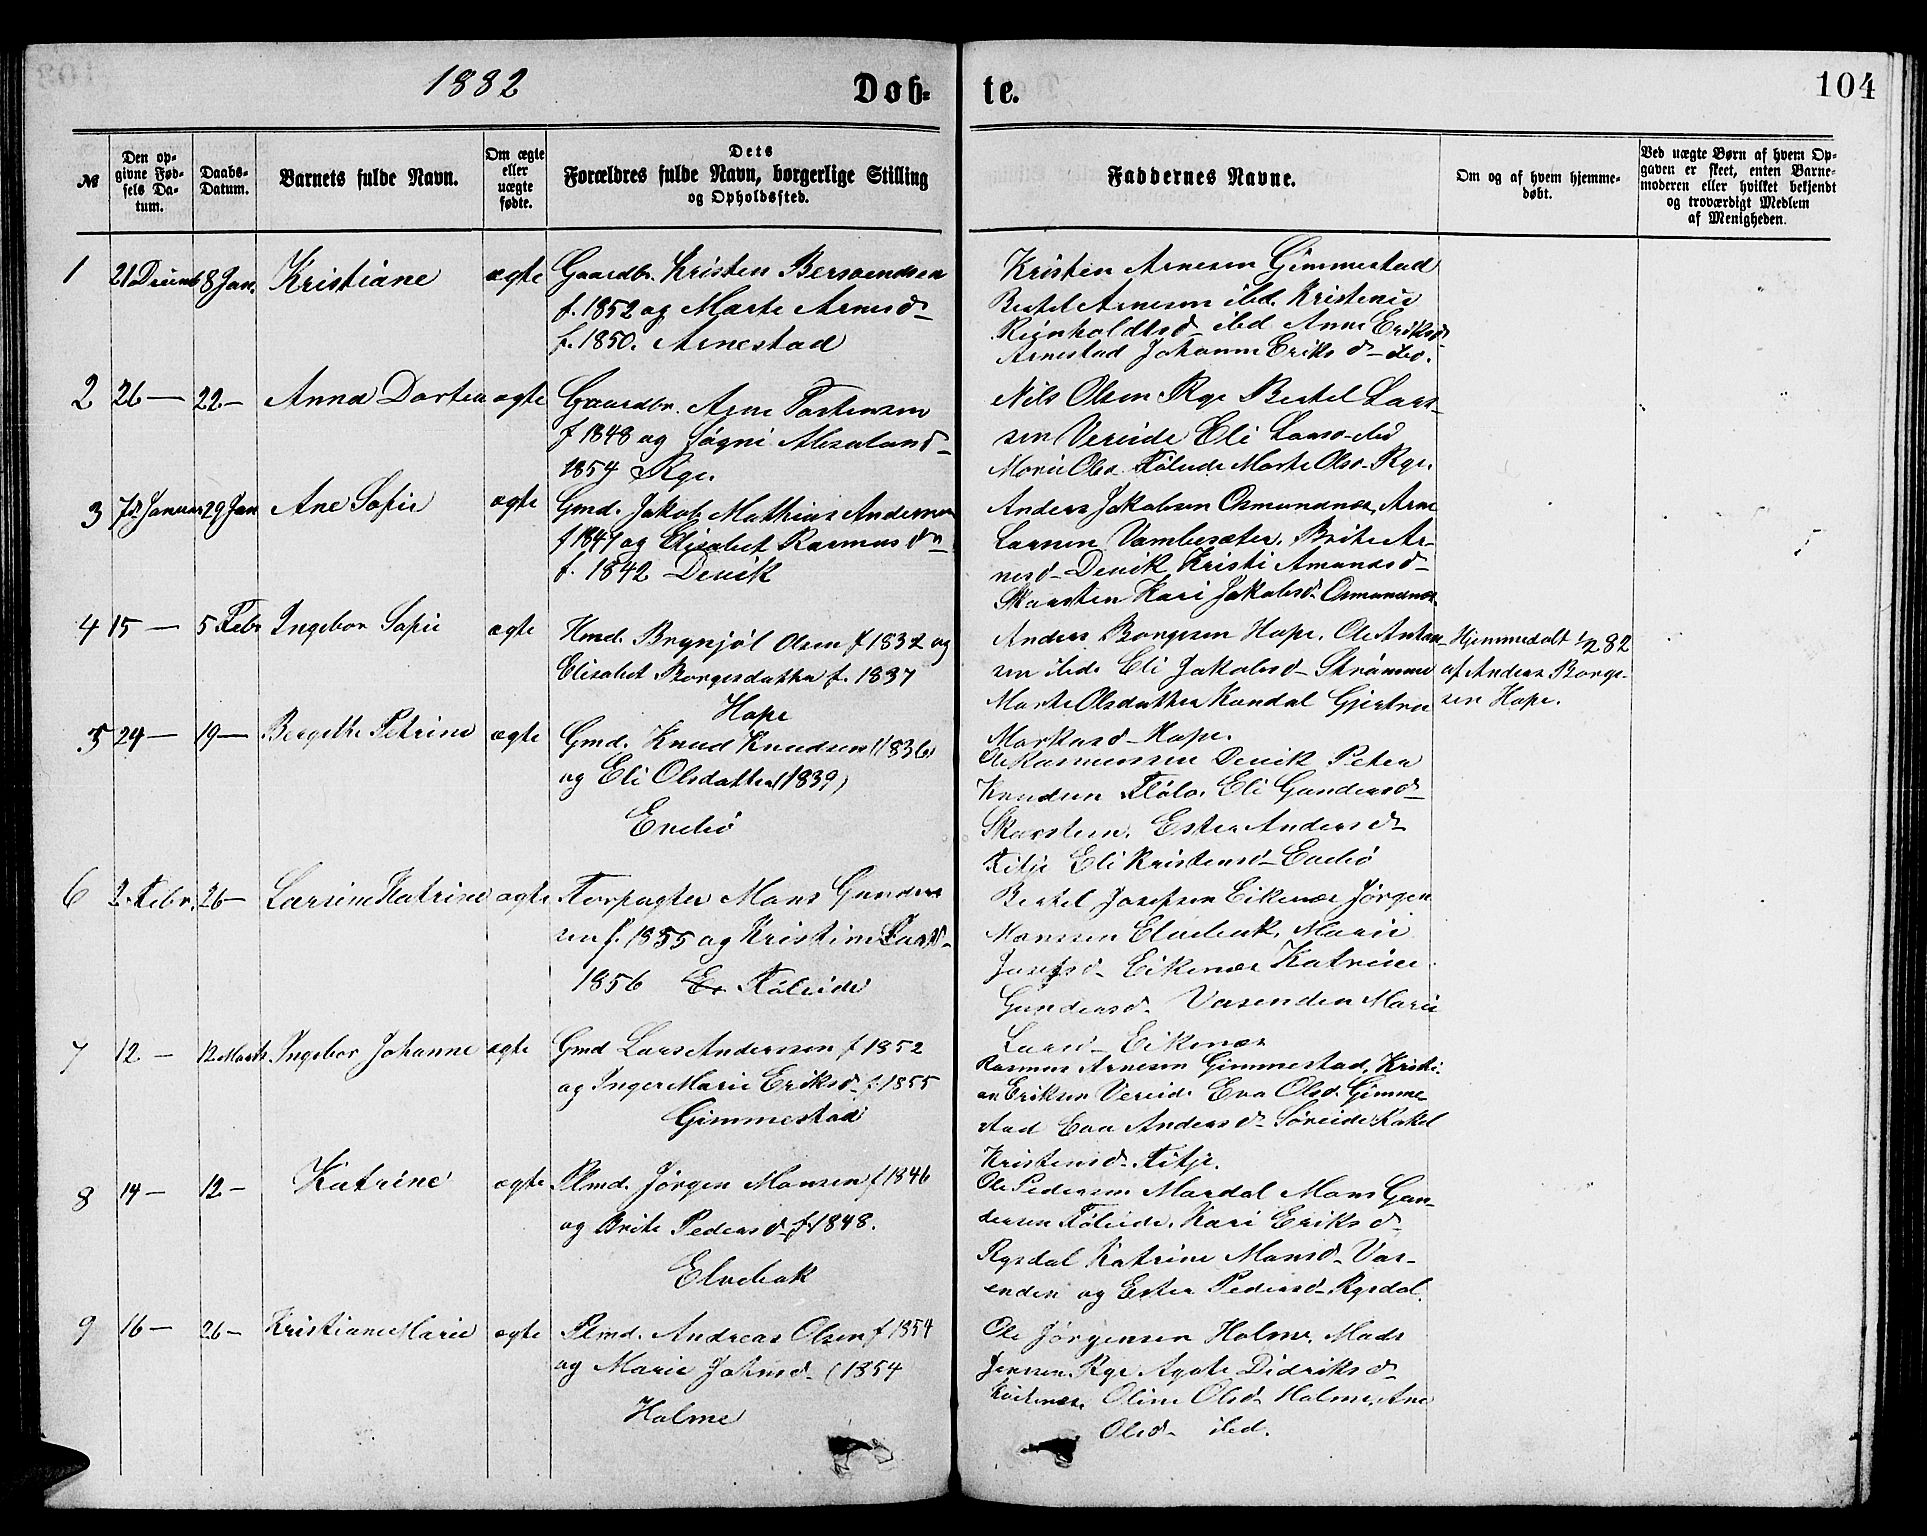 1882
Døb-
te.
104
№
Den op-
givne Fød-
sels Da-
tum.
Daabs-
Datum.
Barnets fulde Navn.
Om ægte
eller
uægte
fødte.
Dets
Forældres fulde Navn, borgerlige Stilling
og Opholdssted.
Faddernes Navne.
Om og af hvem hjemme-
døbt.
Ved uægte Børn af hvem Op-
gaven er skeet, enten Barne-
moderen eller hvilket bekjendt
og troværdigt Medlem
af Menigheden.
1 21 Decemb 8 Jan. Kristiane ægte
Gaardbr. Kristen Bersvendsen
f. 1852 og Marte Arnesd-
f. 1850. Arnestad
Kristen Arnesen Gimmestad
Bertel Arnesen ibd. Kristense
Reinholdtsd- ibd Anne Eriksd-
Arnestad Johanne Eriksd- ibd.
2 26 — 22 - Anna Dortea ægte
Gaardbr. Arne Tostensen
f 1848 og Søgni Absalonsd-
1854 Rye.
Nils Olsen Rye Bertel Lars-
sen Vereide Eli Larsd- ibd
Marie Olsd. Føleide Marte Olsd- Rye.
3 7de Januar 29 Jan Ane Sofie ægte
Gmd. Jakob Mathias Andersen
f 1841 og Elisabet Rasmusd-
f. 1842 Devik
Anders Jakobsen Osmundnæs, Arne
Larsen Vambesæter. Brite Ar-
nesd- Devik Kristi Amundsd-
Skarsten Kari Jakobsd- Osmundnæs.
4 15 — 5 Febr Ingebor Sofie ægte
Hmd. Brynjøl Olsen f 1832 og
Elisabet Borgesdatter f. 1837
Hope
Anders Borgesen Hope. Ole Anton-
sen ibd. Eli Jakobsd- Strømme
Marte Olsdatter Kandal Gjertru
Markusd- Hope.
Hjemmedøbt 1/2 82
af Anders Borge-
sen Hope.
5 24 — 19 — Bergithe Petrine ægte
Gmd. Knud Knudsen (1836)
og Eli Olsdatter (1839)
Endebø
Ole Rasmussen Devik Peter
Knudsen Fløtø. Eli Gundersd-
Skarsten. Ester Andersd-
Fitje Eli Kristensd- Endebø
6 2. Febr. 26 - Larsine Katrine ægte
Forpagter Mons Gunder-
sen f. 1855 og Kristine Larsd-
1856 Føleide
Bertel Josefsen Eikenæs Jørgen
Monssen Elvebak. Marie
Josefsd- Eikenæs Katrine
Gundersd- Vasenden Marie
Larsd- Eikenæs
7 12 - 12 Marts Ingebor Johanne ægte
Gmd Lars Anderssen f 1852
og Inger Marie Eriksd- f. 1855
Gimmestad
Rasmus Arnesen Gimmestad, Kristi-
an Eriksen Vereide Eva Olsd. Gimme-
stad Eva Andersd- Søreide Rakel
Kristensd- Fitje.
8 14 - 12 - Katrine ægte
Plmd. Jørgen Monsen f 1846
og Brite Pedersd- f 1848.
Elvebak
Ole Pedersen Mardal Mons Gun-
dersen Føleide. Kari Eriksd-
Rysdal Katrine Monsd- Vas-
enden og Ester Pedersd- Rysdal.
9 16 - 26 - Kristiane Marie ægte
Plmd. Andreas Olsen f 1854
og Marie Johnsd- (1854
Holme
Ole Jørgensen Holme. Mads
Jensen Rye Agote Didriksd-
Eikenæs. Oline Olsd- Holme, Ane
Olsd- ibd.